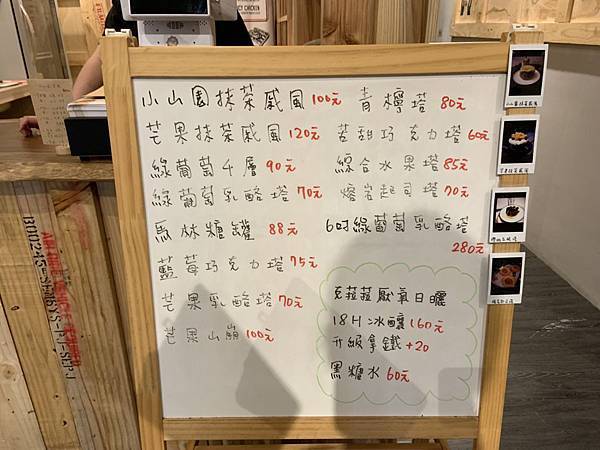 小山園抹茶戚風 100元
芒果抹茶戚風 120元
綠葡萄千層 90元
綠葡萄乳酪塔 70元
馬林糖罐 88元
藍莓巧克力塔 75元
芒果乳酪塔 70元
芒果山崩 100元
青檸塔 80元
苦甜巧克力塔 60元
綜合水果塔 85元
熔岩起司塔 70元
6吋綠葡萄乳酪塔
280元
克菈菈厭氧日曬
18H冰釀 160元
升級拿鐵 +20
黑糖水 60元
B1002-245-SF